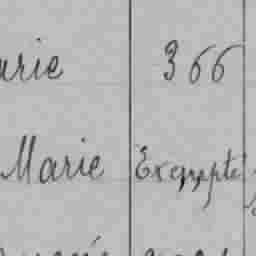 arie 366
Marie Exempté